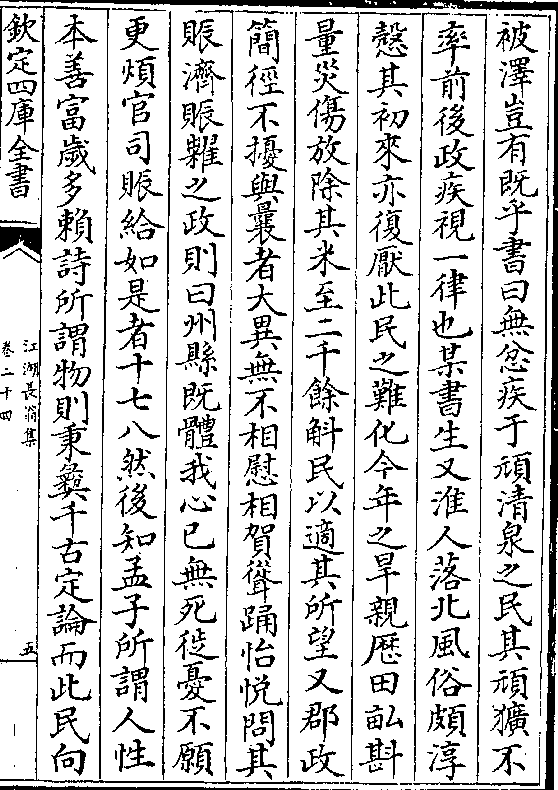 被澤豈有既乎書曰無忿疾于頑清泉之民其頑獷不
率前後政疾視一律也某書生又淮人落北風俗頗淳
慤其初來亦復厭此民之難化今年之旱親歴田畆斟
量災傷放除其米至二千餘斛民以適其所望又郡政
簡徑不擾與曩者大異無不相慰相賀聳踊怡悦問其
賑濟賑糶之政則曰州縣既體我心已無死徙憂不願
更煩官司賑給如是者十七八然後知孟子所謂人性
本善富歲多賴詩所謂物則秉彛千古定論而此民向
欽定四庫全書
江湖長翁集
卷二十四
五